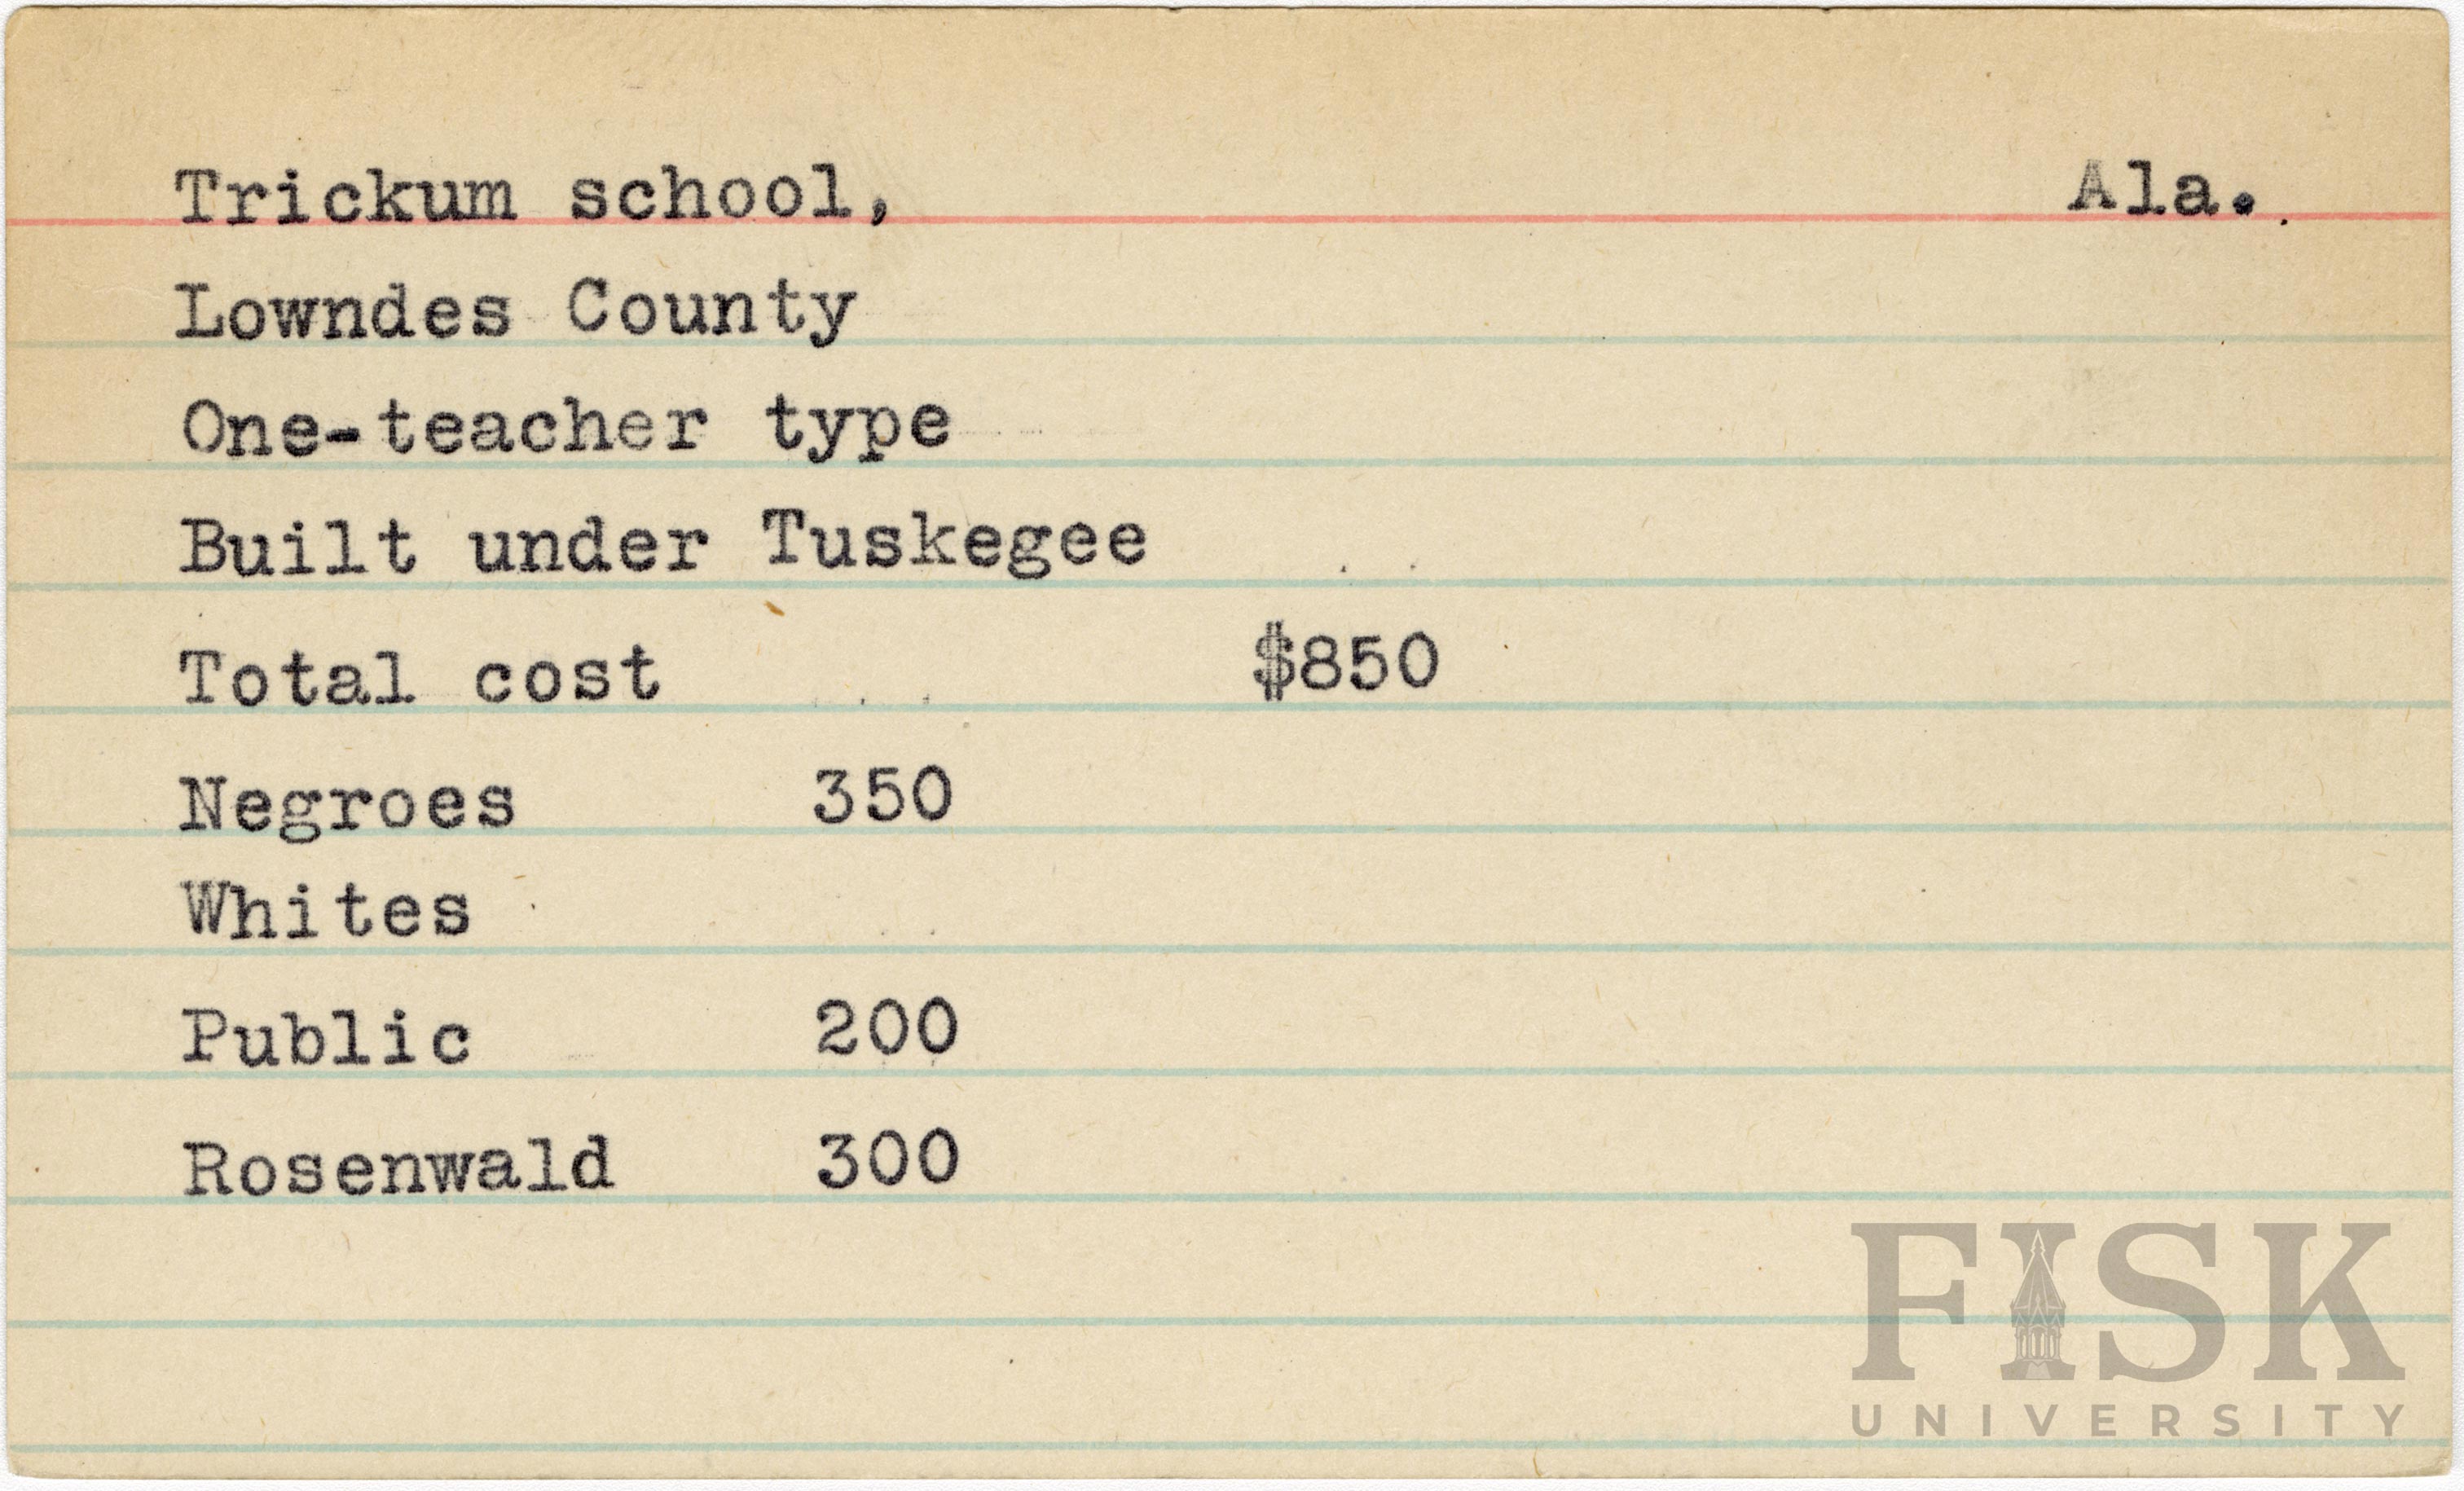 Trickum school, Ala.
Lowndes County
One-teacher type
Built under Tuskegee
Total cost $850
Negroes 350
Whites
Public 200
Rosenwald 300
FISK
UNIVERSITY